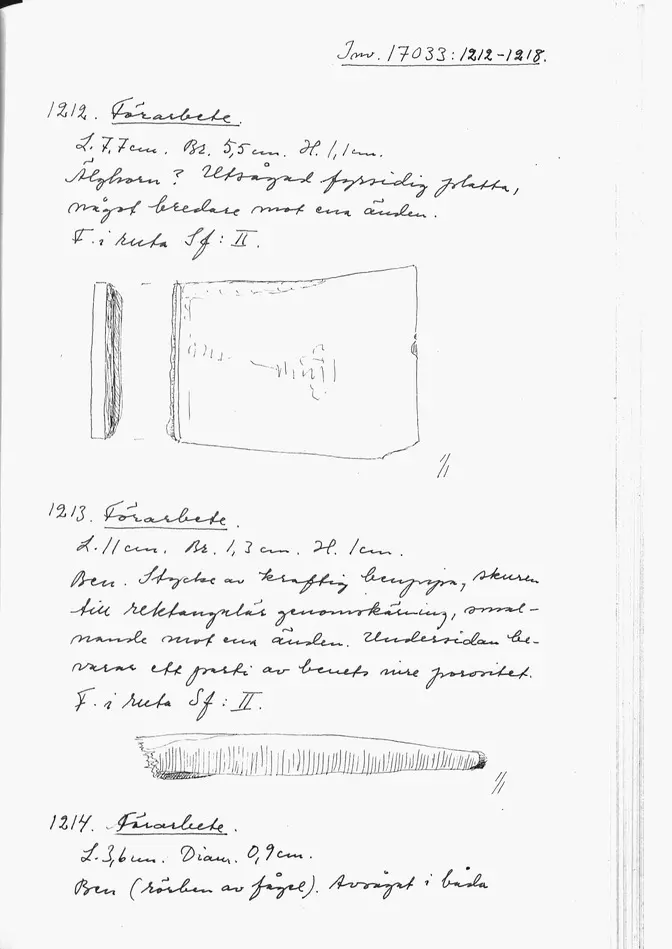 Inv. 17033:1212-1218.
1212. Förarbete.
L. 7,7cm. Br. 5,5 cm. H. 1,1 cm.
Älghorn? Utsågad fyrsidig platta,
något bredare mot ena änden.
F. i ruta Sf: II.
1/1
1213. Förarbete.
L. 11 cm. Br. 1,3 cm. H. 1cm.
Ben. Stycke av kraftig benpipa, skuren
till rektangulär genomskärning, smal-
nande mot ena änden. Undersidan be-
varar ett parti av benets inre porositet.
F. i ruta Sf: II.
1/1
1214. Förarbete.
L. 3,6 cm. Diam. 0,9 cm.
Ben (rörben av fågel). Avsågat i båda